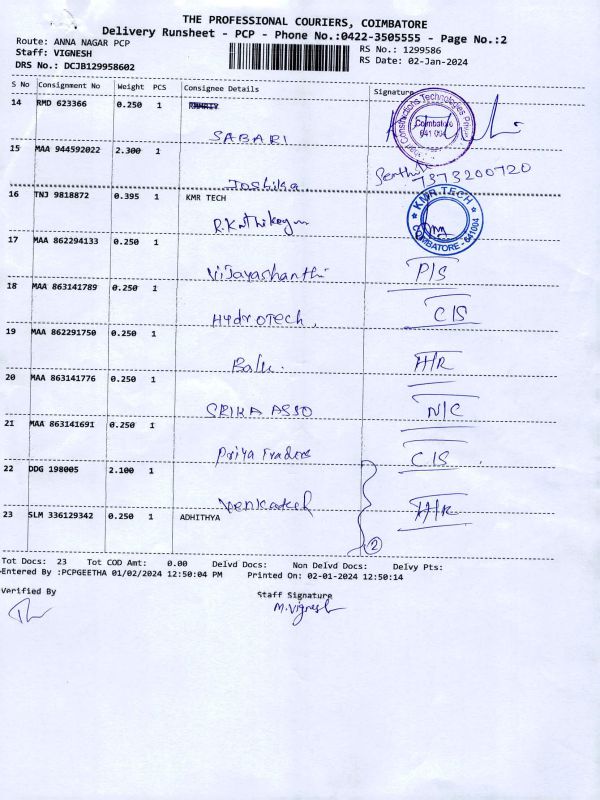 THE PROFESSIONAL COURIERS, COIMBATORE
Delivery Runsheet - PCP - Phone No.:0422-3505555 - Page No.:2
Route: ANNA NAGAR PCP
RS No.: 1299586
Staff: VIGNESH
RS Date: 02-Jan-2024
DRS No.: DCJB129958602
S No Consignment No Weight PCS Consignee Details Signature
14 RMD 623366 0.250 1
Coimbatore 641 004
SABARI
15 MAA 944592022 2.300 1
7373200720
Joshika
16 TNJ 9818872 0.395 1 KMR TECH
KMR TECH
COIMBATORE - 641004
R.Karthikeyan
17 MAA 862294133 0.250 1
Vijayashanthi P/S
18 MAA 863141789 0.250 1
Hydrotech, C/S
19 MAA 862291750 0.250 1
Balu. H/R
20 MAA 863141776 0.250 1
SRIKA ASSO N/C
21 MAA 863141691 0.250 1
Priya Traders C/S
22 DDG 198005 2.100 1
Venkatesh H/R
23 SLM 336129342 0.250 1 ADHITHYA
2
Tot Docs: 23 Tot COD Amt: 0.00 Delvd Docs: Non Delvd Docs: Delvy Pts:
Entered By :PCPGEETHA 01/02/2024 12:50:04 PM Printed On: 02-01-2024 12:50:14
Verified By Staff Signature
M.Vignesh